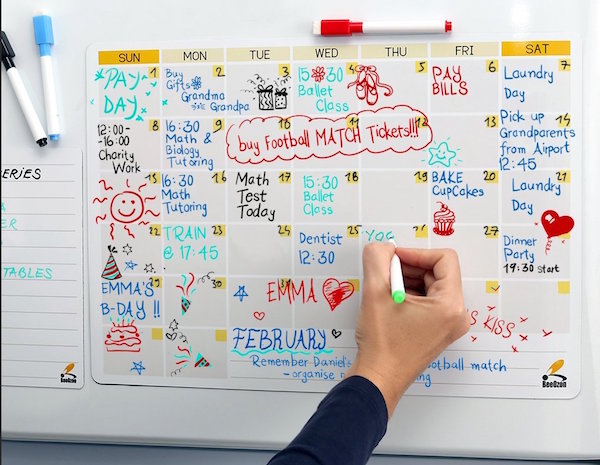 SUN MON TUE WED THU FRI SAT
1 2 3 4 5 6 7
PAY
DAY
Buy
Gifts
Grandma
Grandpa
15:30
Ballet
Class
PAY
BILLS
Laundry
Day
8 9 10 11 12 13 14
12:00-
-16:00
Charity
Work
16:30
Math &
Biology
Tutoring
buy Football MATCH Tickets!!!
Pick up
Grandparents
from Airport
12:45
15 16 17 18 19 20 21
16:30
Math
Tutoring
Math
Test
Today
15:30
Ballet
Class
BAKE
CupCakes
Laundry
Day
22 23 24 25 27
TRAIN
@ 17:45
Dentist
12:30
Dinner
Party
19:30 start
29 30
EMMA'S
B-DAY !!
EMMA
KISS
FEBRUARY
Remember Daniel's
football match
- organise
ERIES
ER
TABLES
BeeGzon
BeeGzon